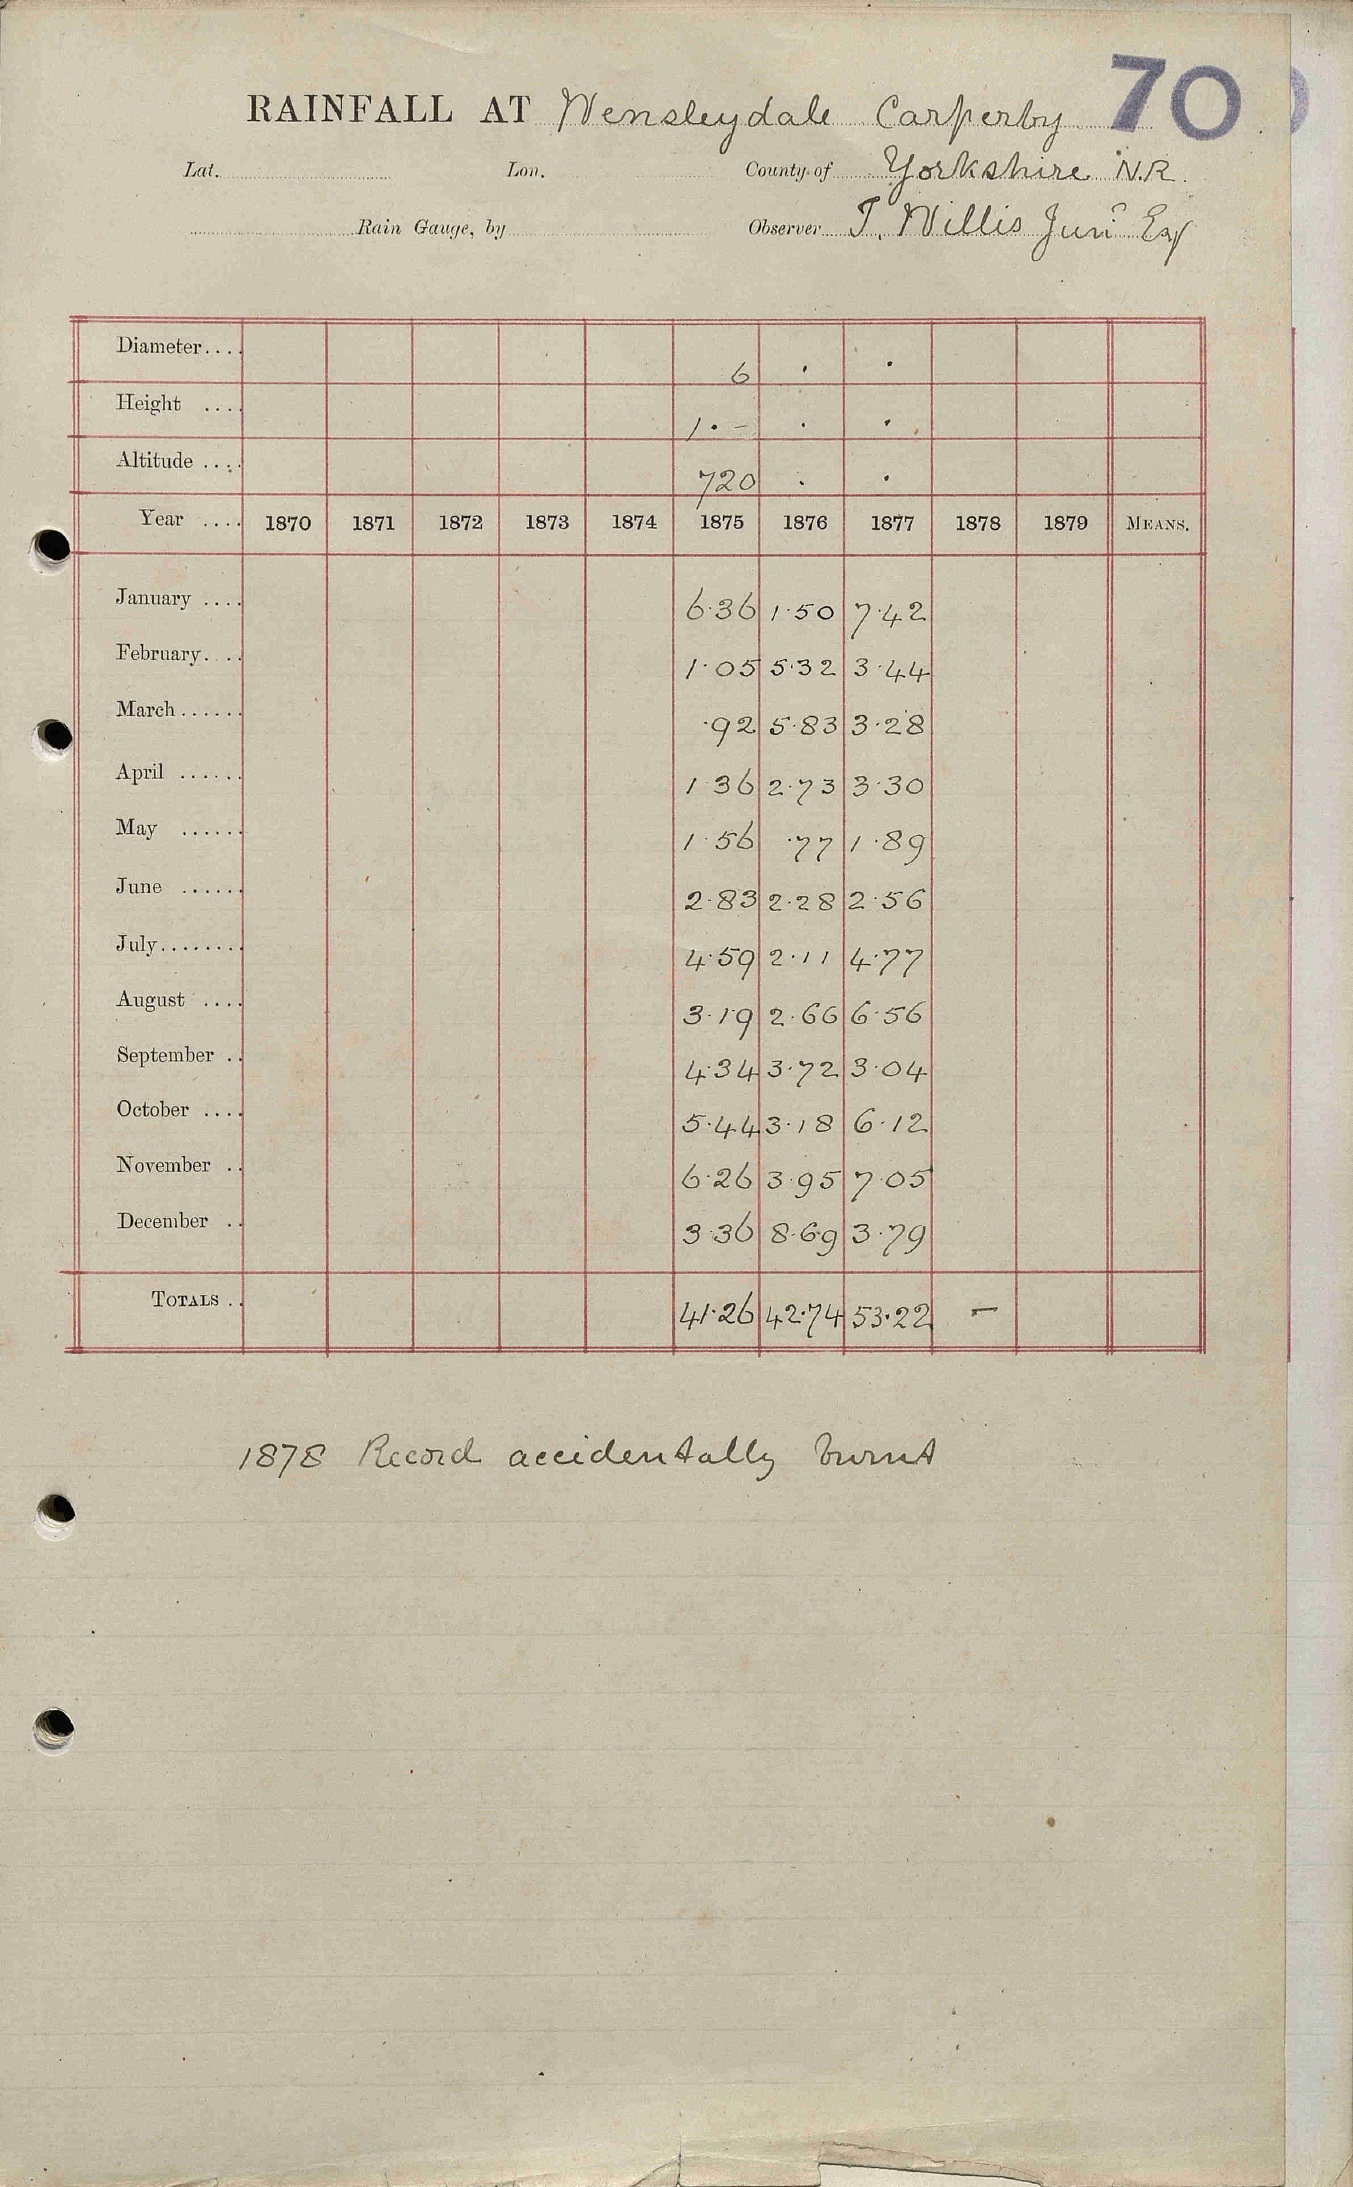 70
RAINFALL AT Wensleydale Carperby
Lat. Lon. County of Yorkshire N.R.
Rain Gauge, by Observer T. Willis Junr Esq
Diameter.... 6 . .
Height .... 1.- . .
Altitude .... 720 . .
Year .... 1870 1871 1872 1873 1874 1875 1876 1877 1878 1879 MEANS.
January .... 6.36 1.50 7.42
February.... 1.05 5.32 3.44
March...... .92 5.83 3.28
April ...... 1.36 2.73 3.30
May ...... 1.56 .77 1.89
June ...... 2.83 2.28 2.56
July........ 4.59 2.11 4.77
August .... 3.19 2.66 6.56
September .. 4.34 3.72 3.04
October .... 5.44 3.18 6.12
November .. 6.26 3.95 7.05
December .. 3.36 8.69 3.79
TOTALS .. 41.26 42.74 53.22 —
1878 Record accidentally burnt